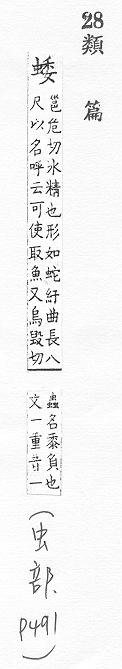 28類篇
蜲
邕危切水精也形如蛇紆曲長八
尺以名呼云可使取魚又鳥毀切
蟲名黍負也
文一重音一
(虫部 P491)